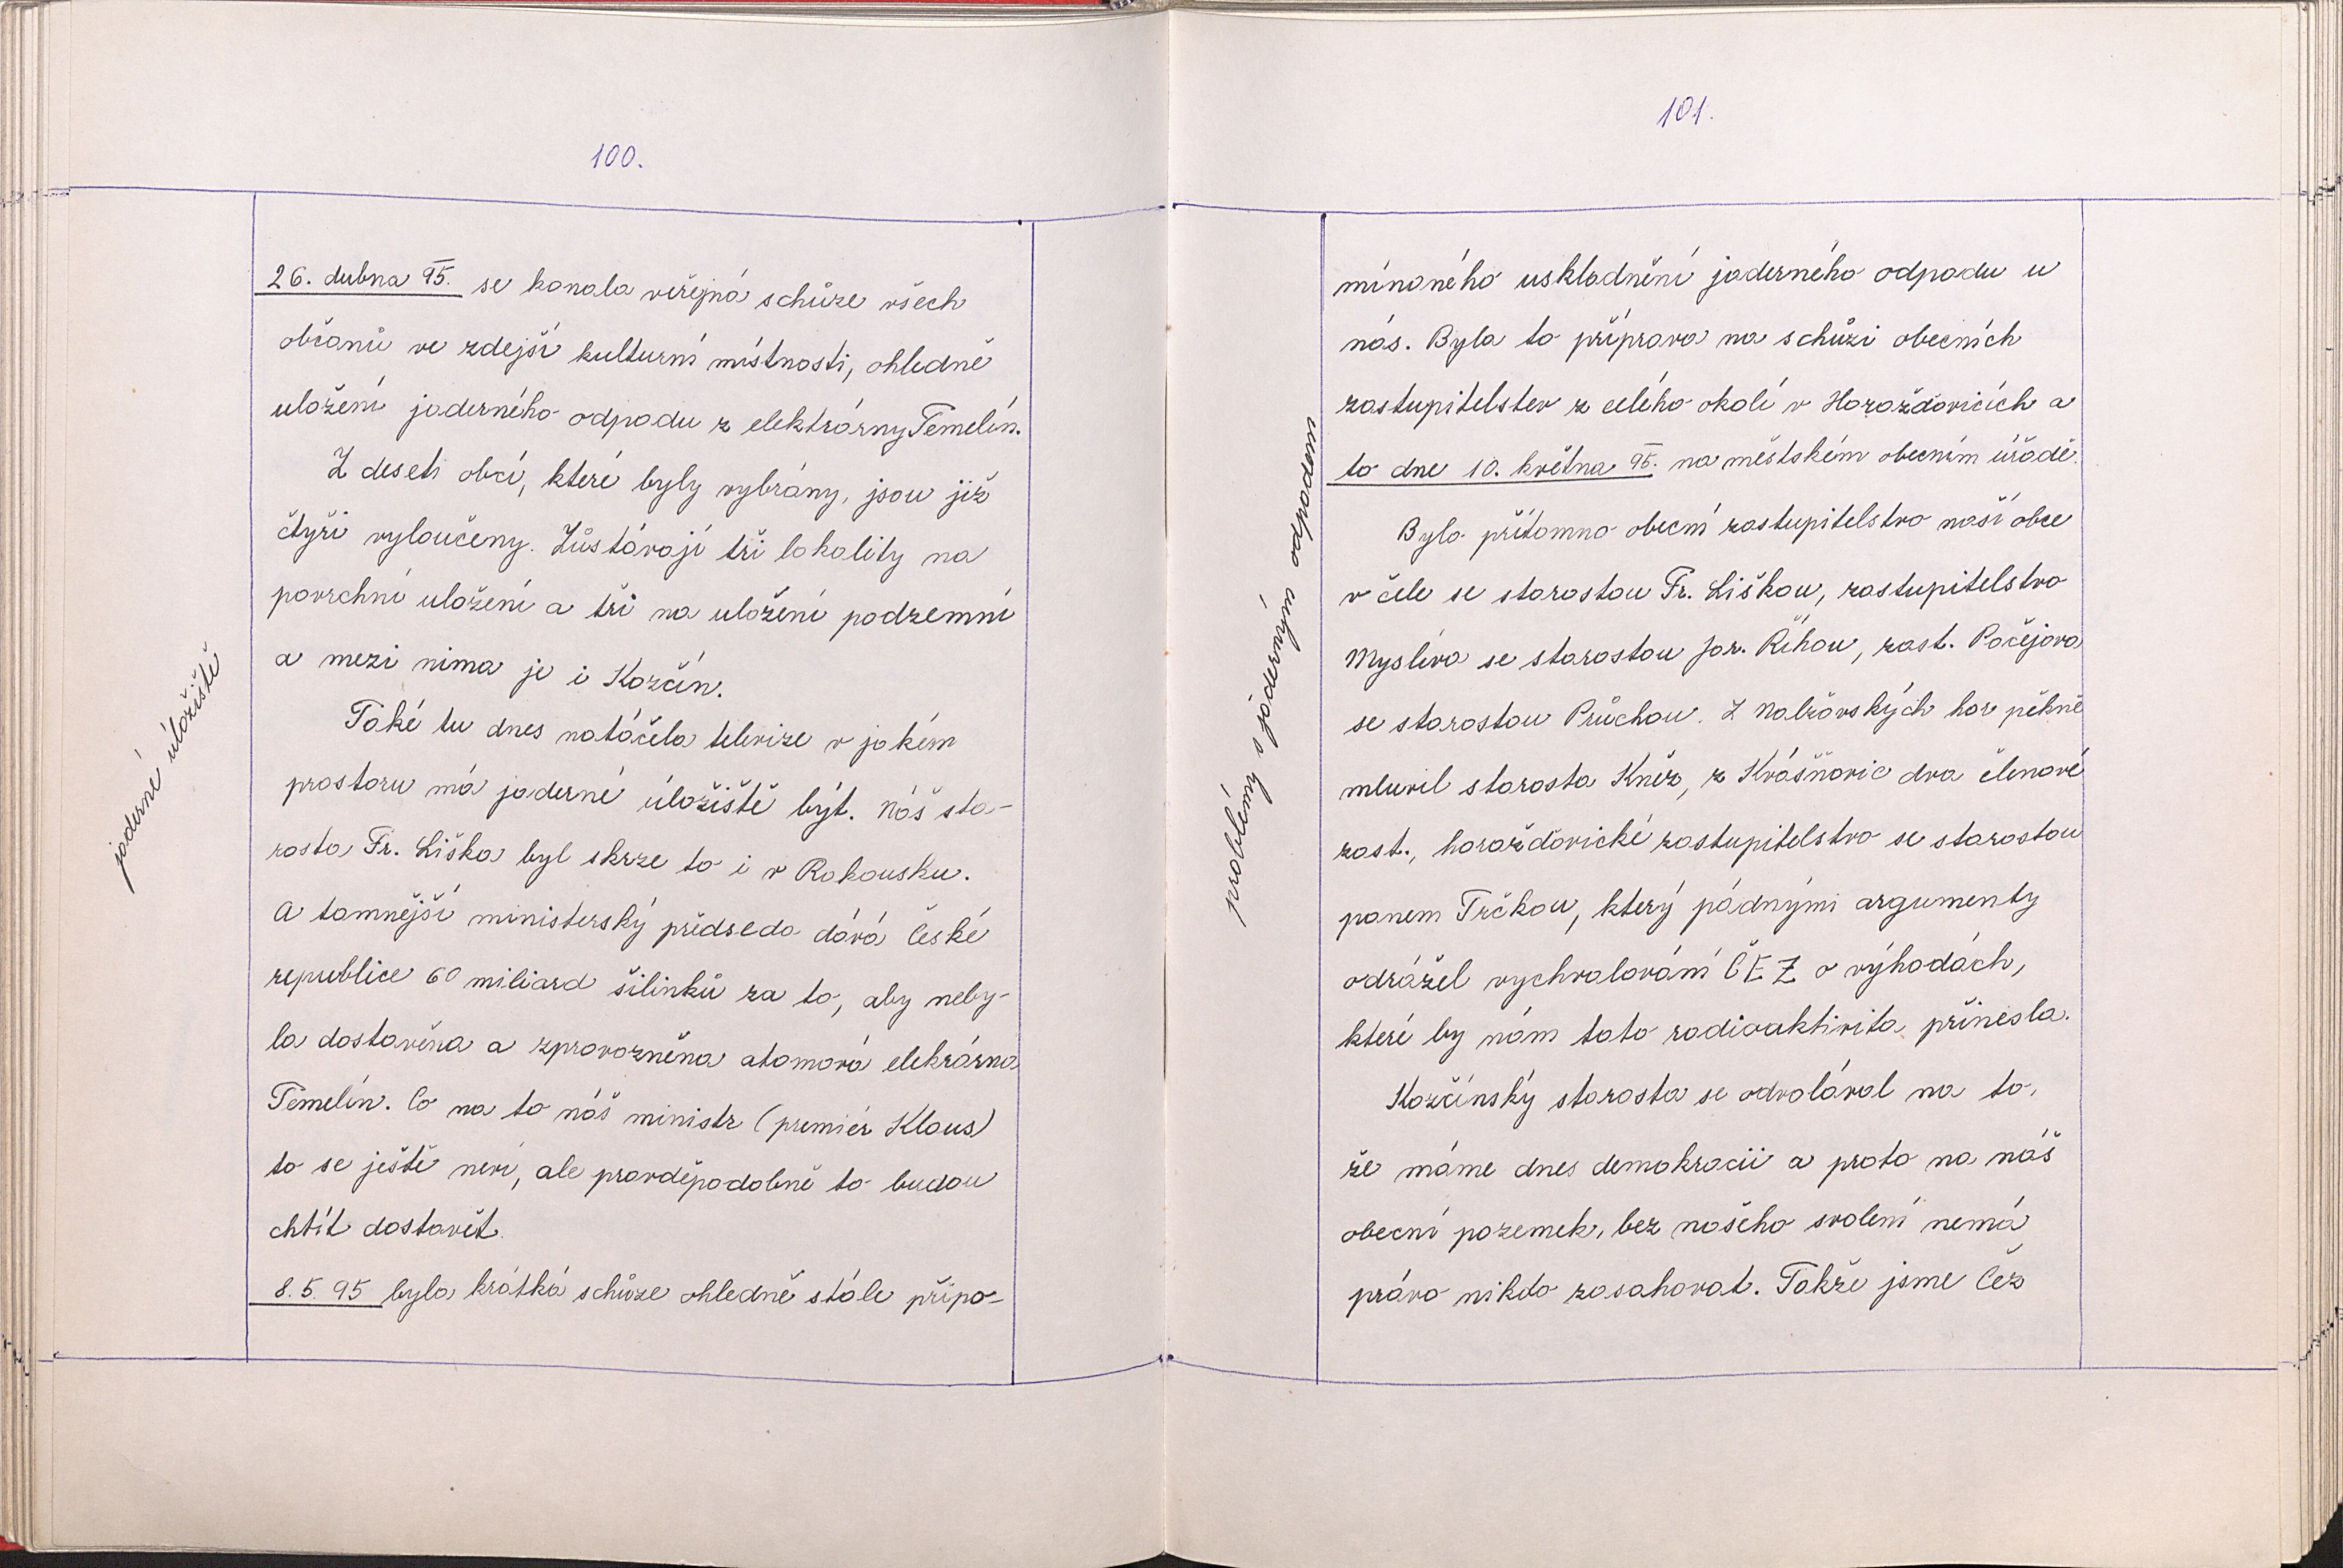 100.
26. dubna 95. se konala veřejná schůze všech
občanů ve zdejší kulturní místnosti, ohledně
uložení jaderného odpadu z elektrárny Temelín.
Z deseti obcí, které byly vybrány, jsou již
čtyři vyloučeny. Zůstávají tři lokality na
povrchní uložení a tři na uložení podzemní
a mezi nima je i Kozčín.
Také tu dnes natáčela televize v jakém
prostoru má jaderné úložiště být. Náš sta-
rosta Fr. Liška byl skrze to i v Rakousku.
A tamnější ministerský předseda dává České
republice 60 miliard šilinků za to, aby neby-
la dostavěna a zprovozněna atomová elekrárna
Temelín. Co na to náš ministr (premiér Klaus)
to se ještě neví, ale pravděpodobně to budou
chtít dostavět.
8. 5. 95 byla krátká schůze ohledně stále přípo-
jaderné úložiště
101.
mínaného uskladnění jaderného odpadu u
nás. Byla to příprava na schůzi obecních
zastupitelstev z celého okolí v Horažďovicích a
to dne 10. května 95. na městském obecním úřadě.
Bylo přítomno obecní zastupitelstvo naší obce
v čele se starostou Fr. Liškou, zastupitelstvo
Myslíva se starostou Jar. Říhou, zast. Pačejova
se starostou Průchou. Z Nalžovských hor pěkně
mluvil starosta Kněz, z Kvášňovic dva členové
zast., horažďovické zastupitelstvo se starostou
panem Trčkou, který pádnými argumenty
odrážel vychvalování ČEZ o výhodách,
které by nám tato radioaktivita přinesla.
Kozčínský starosta se odvolával na to,
že máme dnes demokracii a proto na náš
obecní pozemek, bez našeho svolení nemá
právo nikdo zasahovat. Takže jsme Čez
problémy s jaderným odpadem